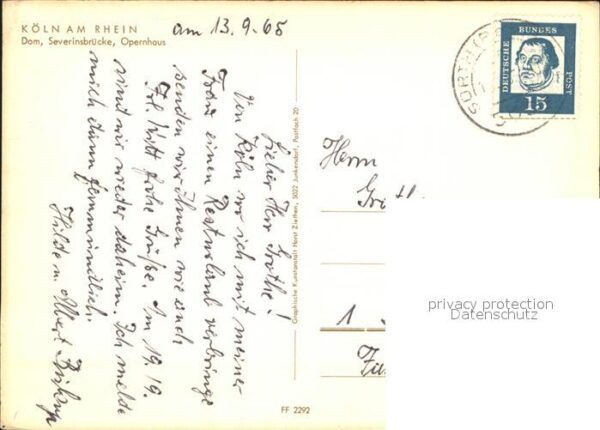 KÖLN AM RHEIN
Dom, Severinsbrücke, Opernhaus
am 13.9.65
Lieber Herr Grothe!
Von Köln wo ich mit meiner
Frau einen Resturlaub verbringe
senden wir Ihnen wie auch
Frl. Witt frohe Grüße. Am 19./9.
sind wir wieder daheim. Ich melde
mich dann fernmündlich.
Hilde u. Albert
Graphische Kunstanstalt Horst Ziethen, 5022 Junkersdorf, Postfach 20
FF 2292
DEUTSCHE BUNDES POST
15
SÜRTH
Herrn
1
privacy protection
Datenschutz